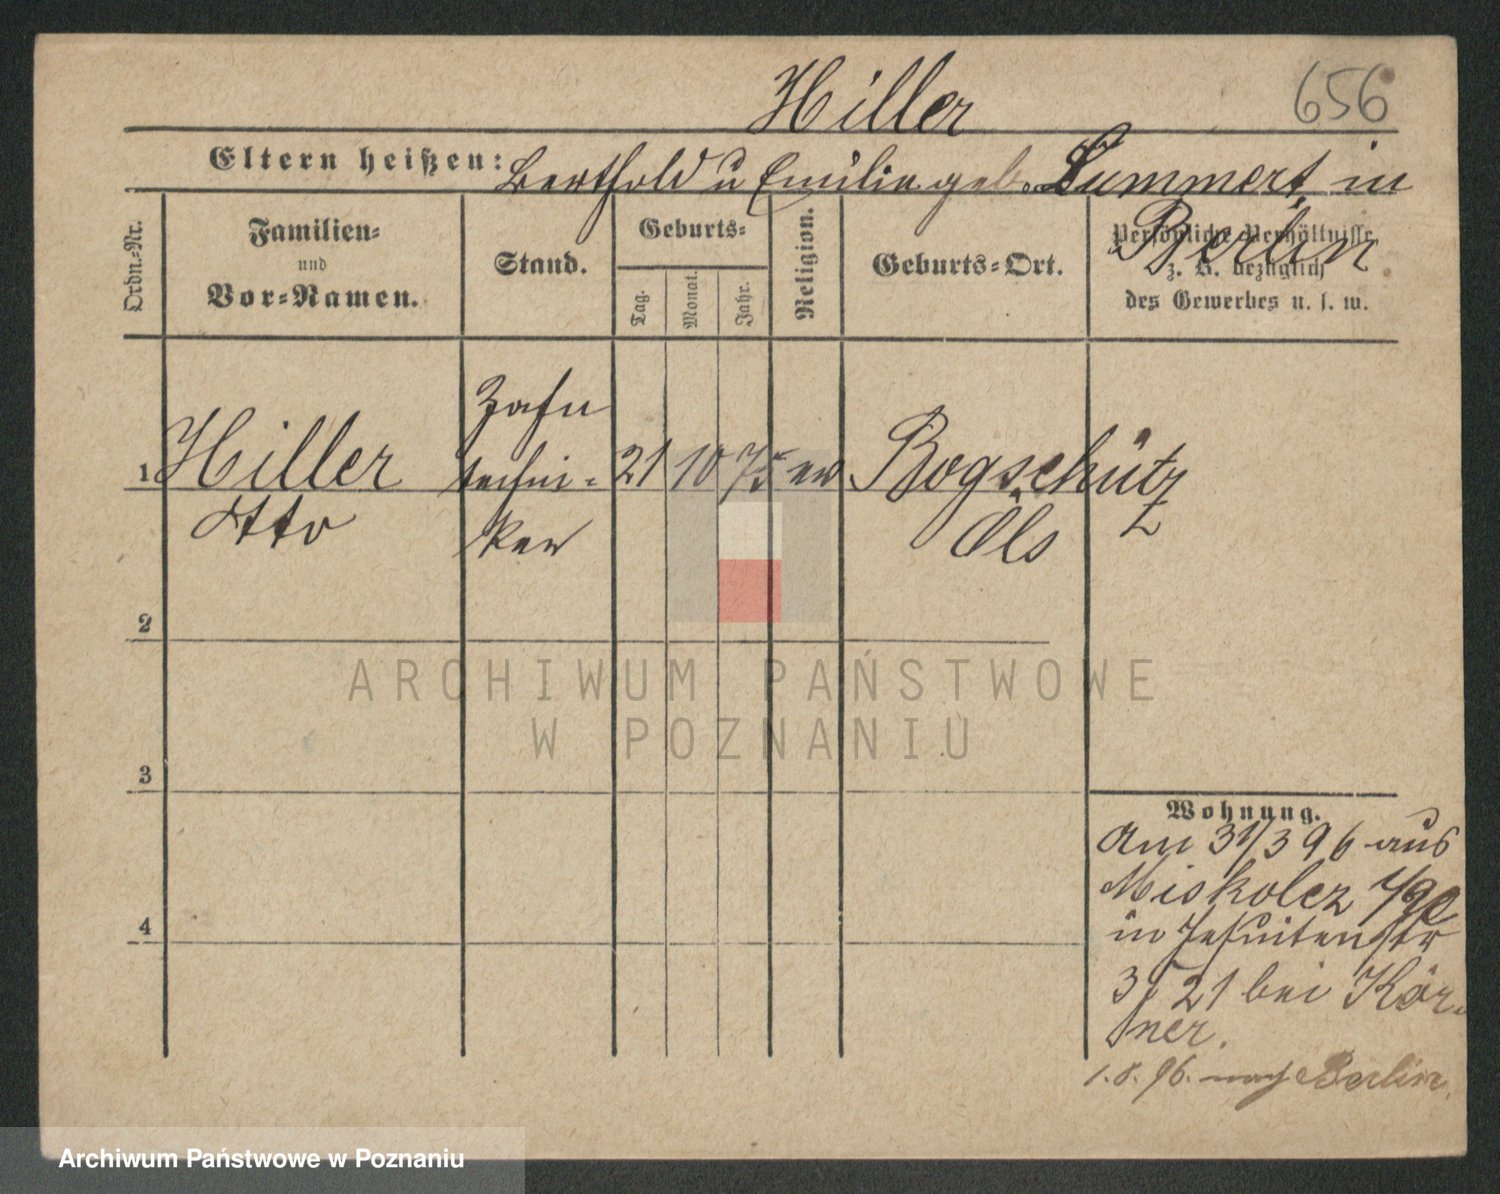 Hiller
656
Eltern heißen: Berthold u Emilie geb. Lummert, in
Berlin
Ordn.-Nr.
Familien-
und
Vor-Namen.
Stand.
Geburts-
Tag.
Monat.
Jahr.
Religion.
Geburts-Ort.
Persönliche Verhältnisse,
z. B. bezüglich
des Gewerbes u. s. w.
Zahn
1 Hiller techni- 21 10 75 ev Bogschütz
Otto ker Öls
2
ARCHIWUM PAŃSTWOWE
W POZNANIU
3
Wohnung.
Am 31/3 96 aus
Miskolcz
in Jesuitenstr
21 bei Kör-
ner.
4
1.8.96. nach Berlin.
Archiwum Państwowe w Poznaniu